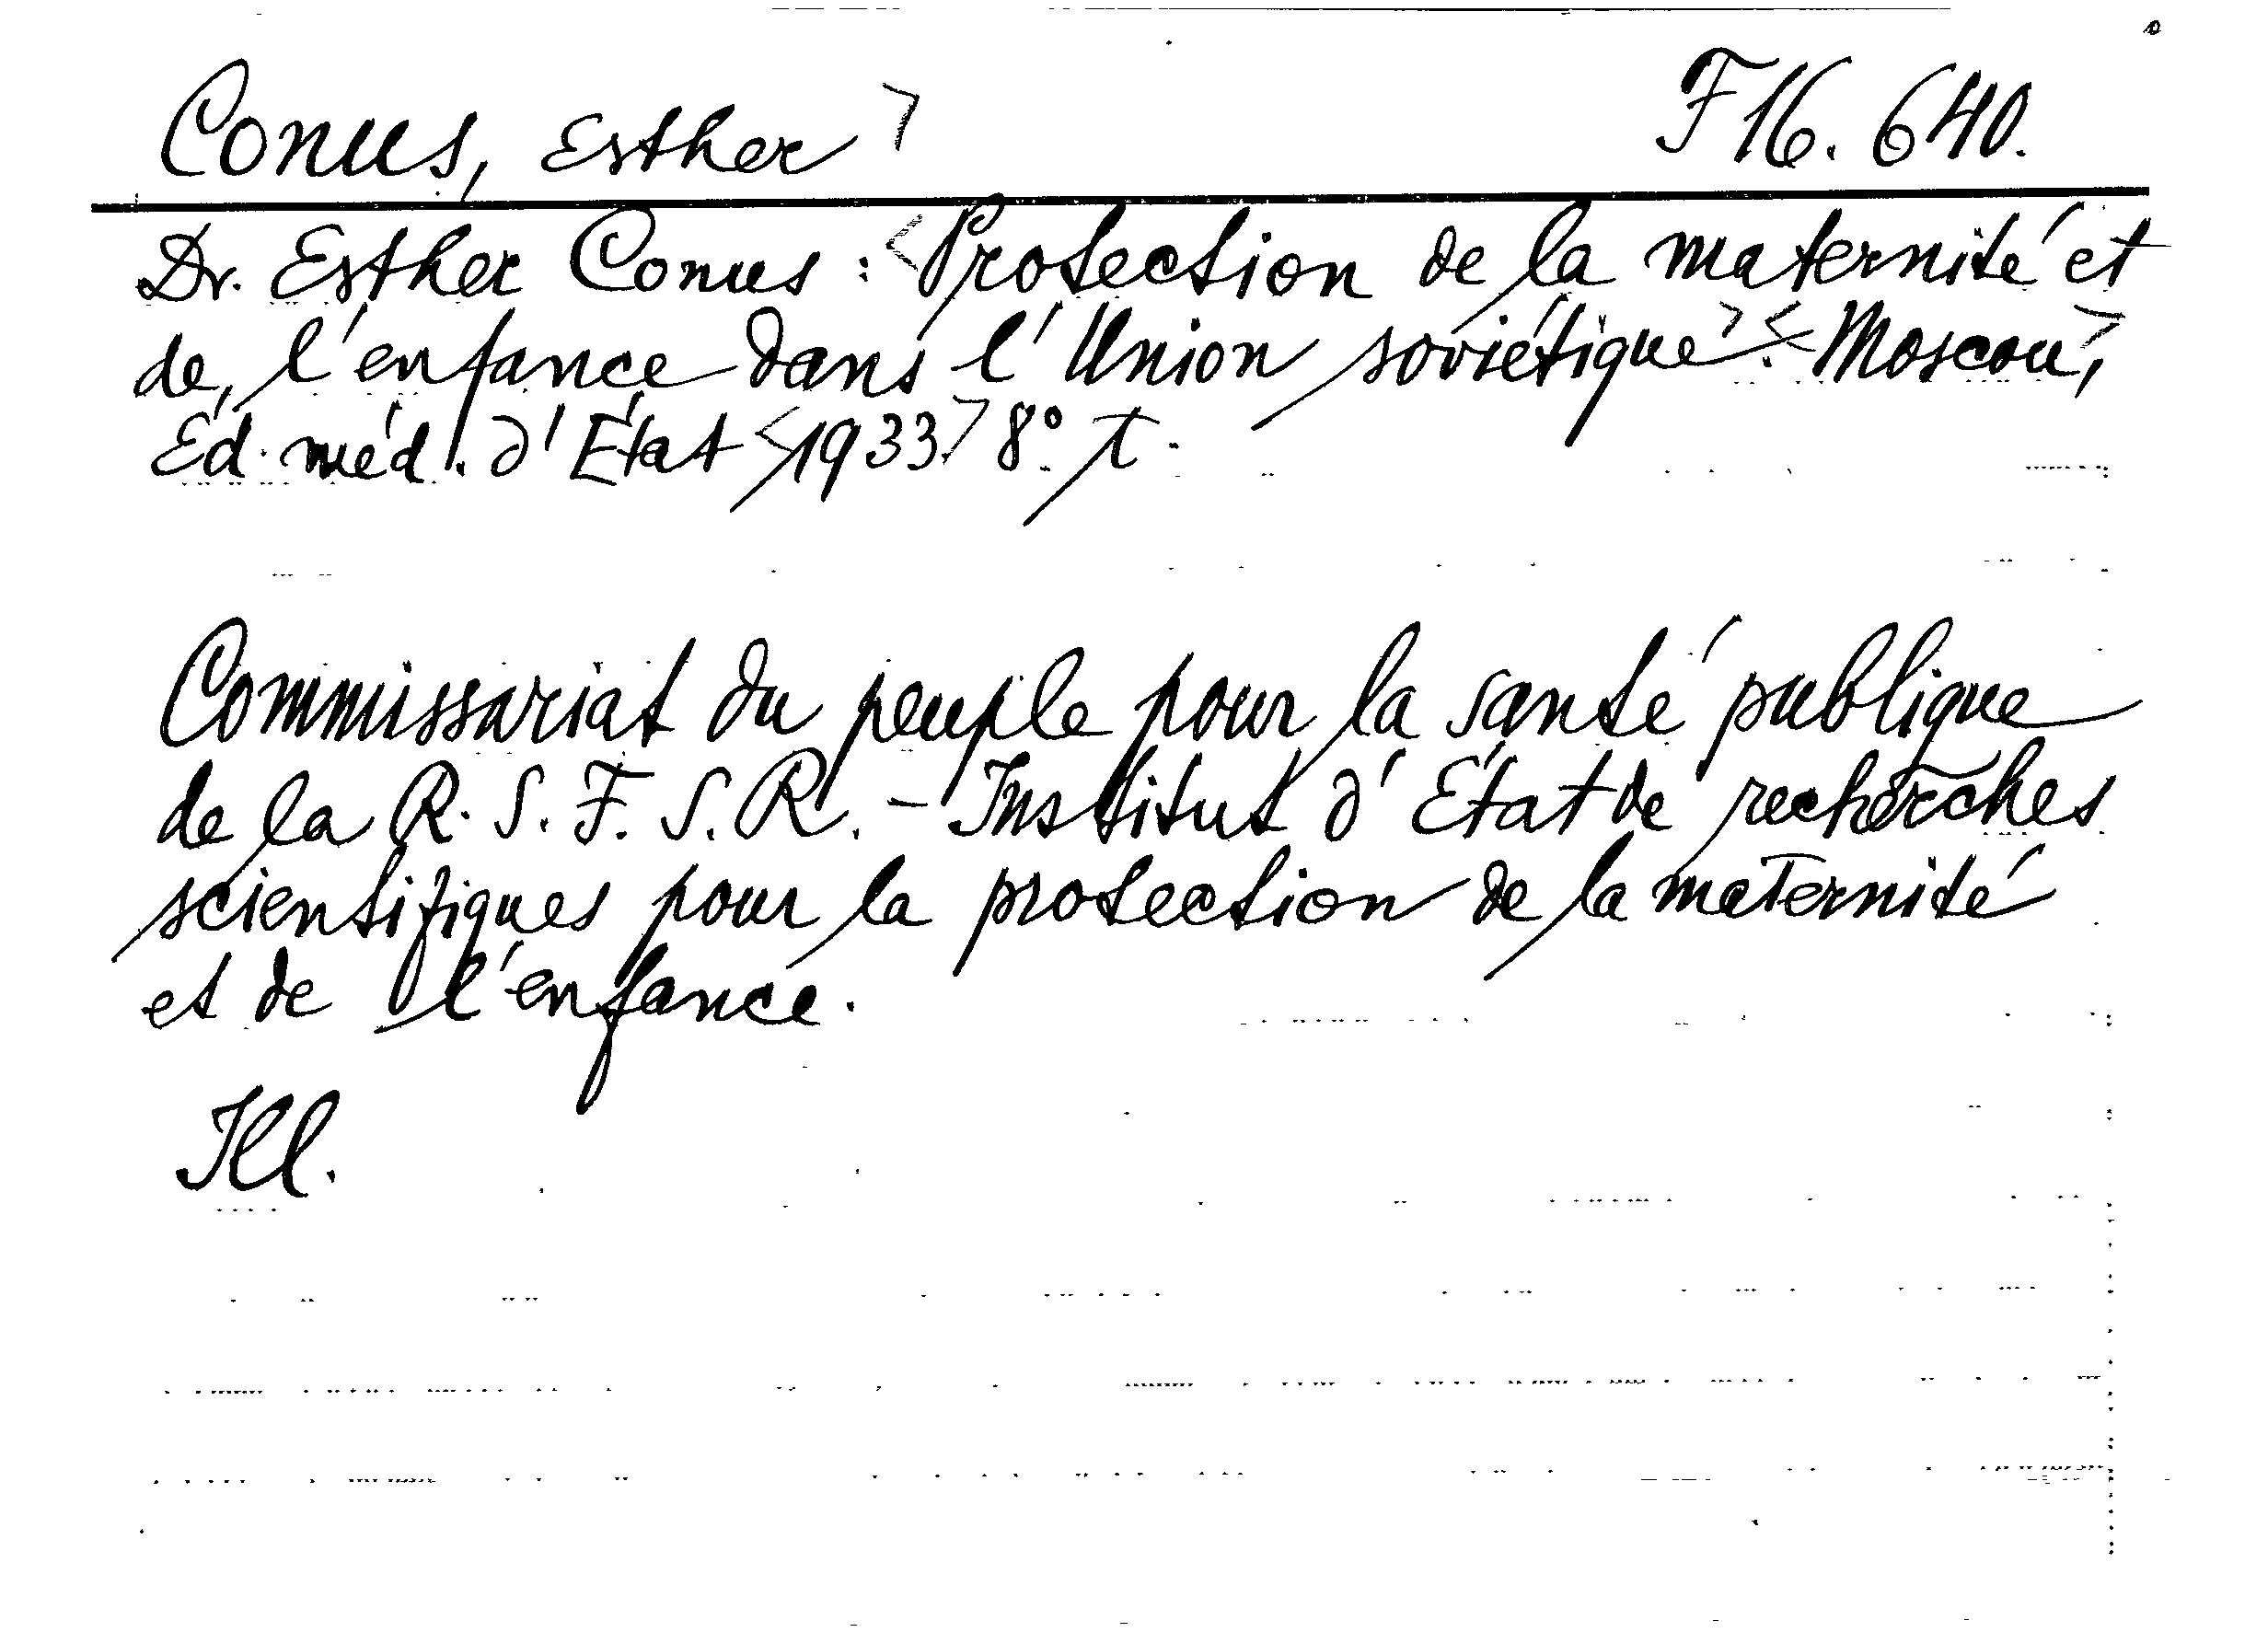 Conus, Esther F 16.640.
Dr. Esther Conus: Protection de la maternité et
de l'enfance dans l'Union soviétique. Moscou,
Éd. méd. d'État 1933. 8°. T.
Commissariat du peuple pour la santé publique
de la R.S.F.S.R. - Institut d'État de recherches
scientifiques pour la protection de la maternité
et de l'enfance.
Ill.